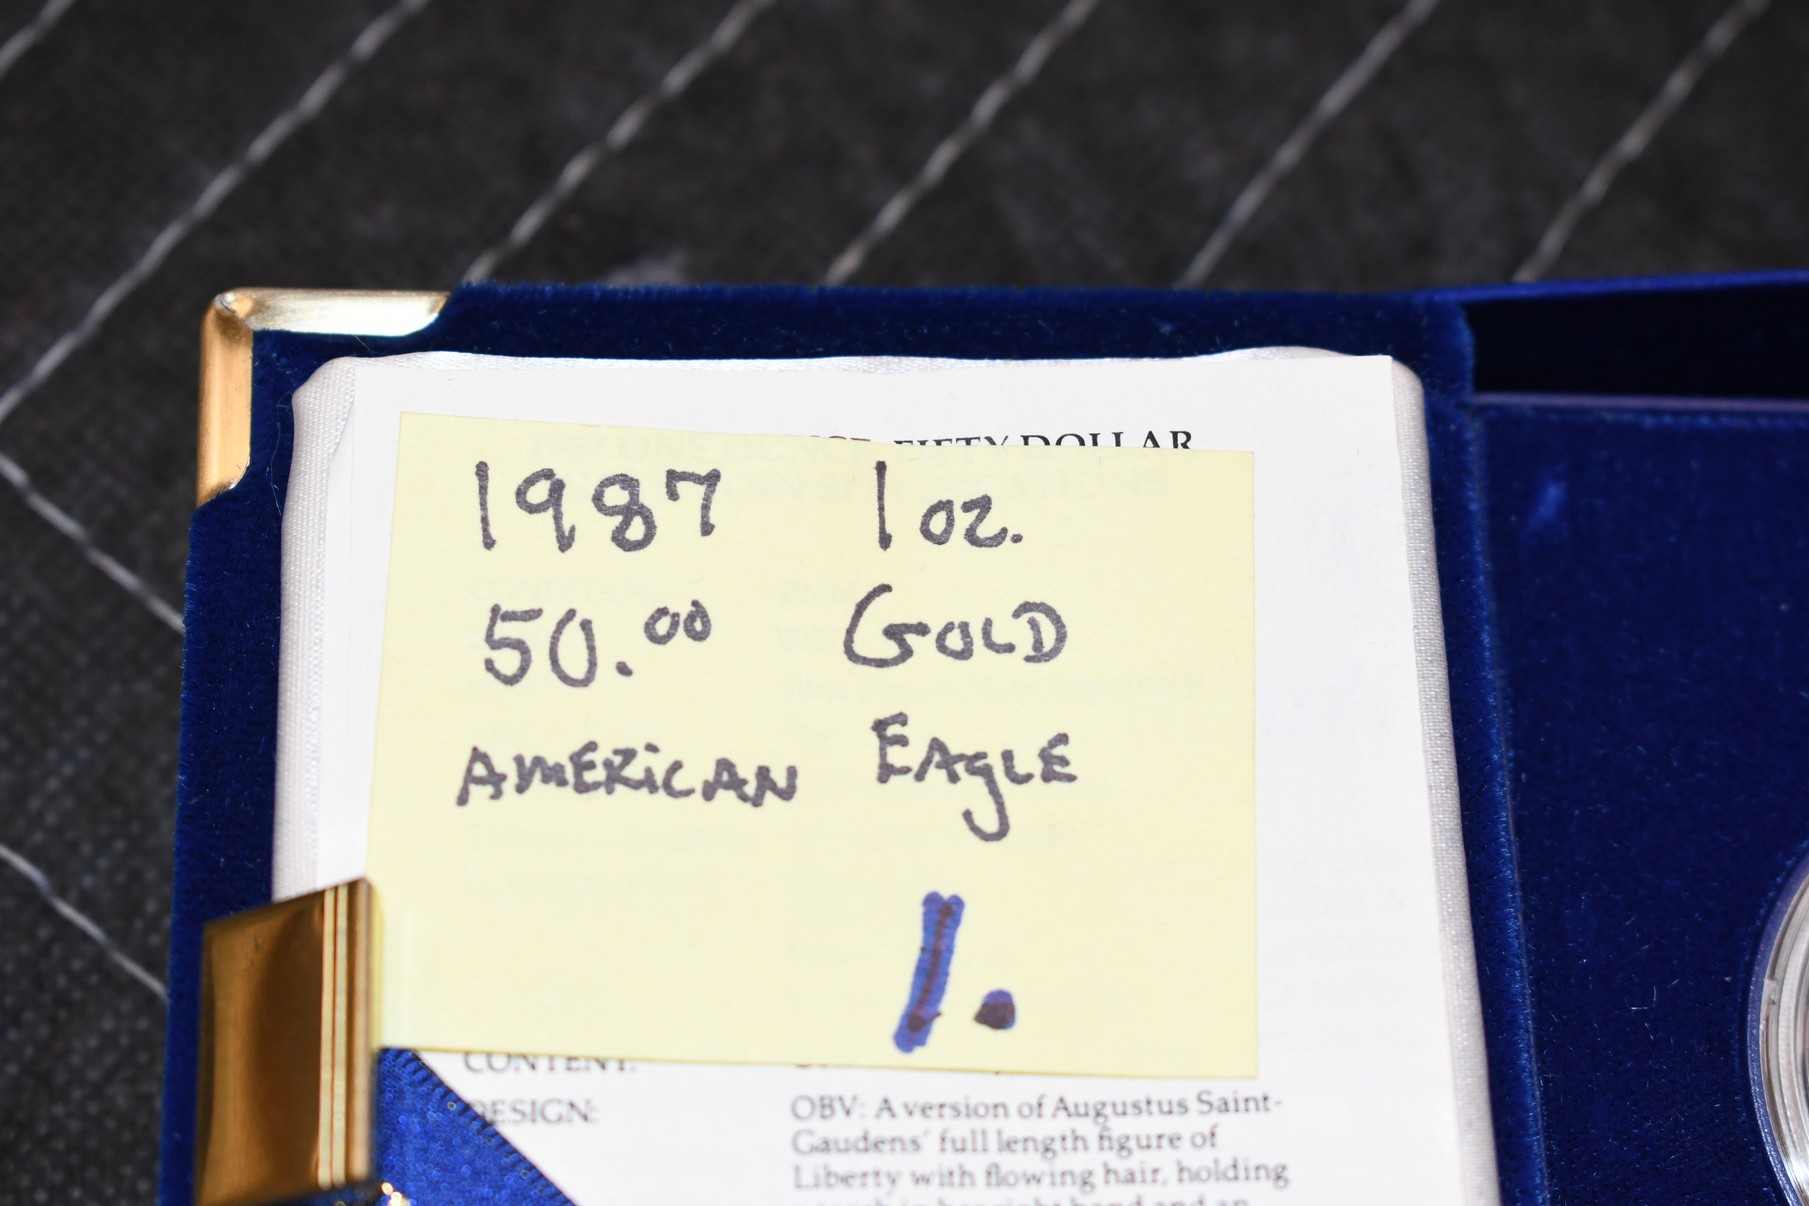 FIFTY DOLLAR
1987 1 oz.
50.00 GOLD
AMERICAN EAGLE
1.
CONTENT:
DESIGN: OBV: A version of Augustus Saint-
Gaudens' full length figure of
Liberty with flowing hair, holding